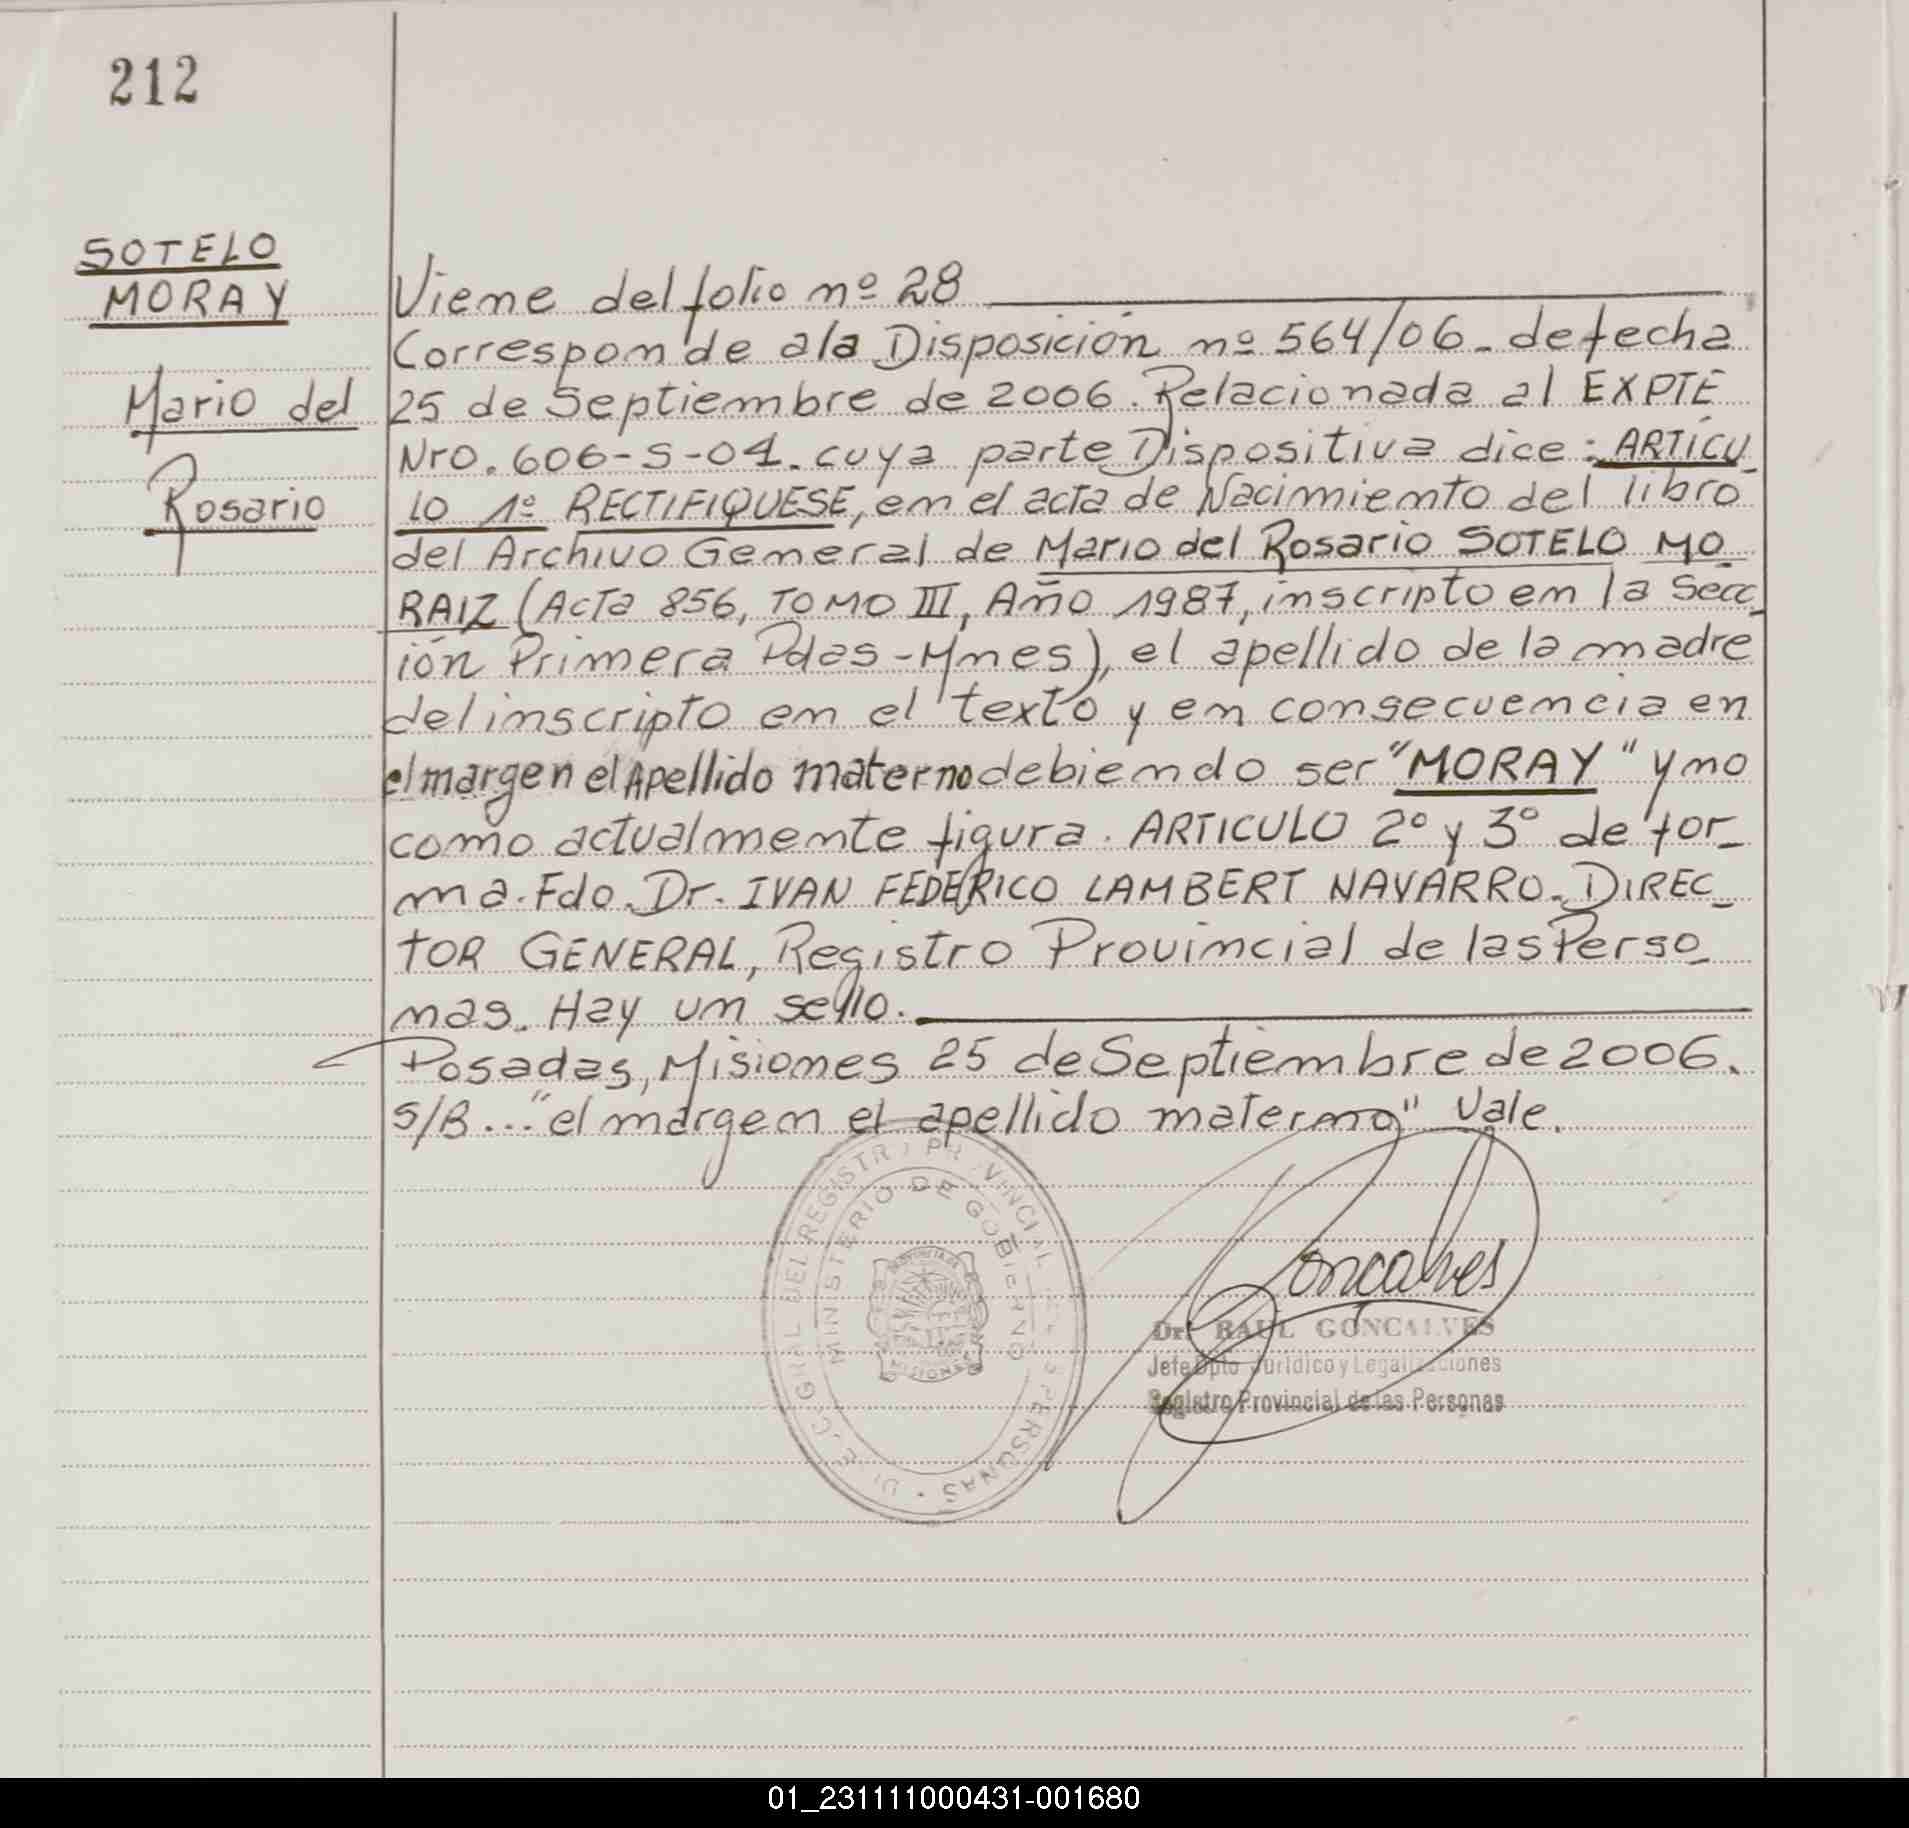 212
SOTELO
MORAY
Mario del
Rosario
Viene del folio nº 28
Corresponde a la Disposición nº 564/06 - de fecha
25 de Septiembre de 2006. Relacionada al EXPTE
Nro. 606-S-04. cuya parte Dispositiva dice: ARTÍCU
LO 1º RECTIFIQUESE, en el acta de Nacimiento del libro
del Archivo General de Mario del Rosario SOTELO MO
RAIZ (Acta 856, TOMO III, Año 1987, inscripto en la Secc_
ión Primera Pdas-Mnes), el apellido de la madre
del inscripto en el texto y en consecuencia en
el margen el Apellido materno debiendo ser "MORAY" y no
como actualmente figura. ARTICULO 2º y 3º de for_
ma. Fdo. Dr. IVAN FEDERICO LAMBERT NAVARRO. DIREC_
TOR GENERAL, Registro Provincial de las Perso_
nas. Hay un sello.
Posadas, Misiones 25 de Septiembre de 2006.
S/B... "el margen el apellido materno" Vale.
DIREC. GRAL DEL REGISTRO PROVINCIAL DE LAS PERSONAS
MINISTERIO DE GOBIERNO
MISIONES
Goncalves
Dr. RAUL GONCALVES
Jefe Dpto Jurídico y Legalizaciones
Registro Provincial de las Personas
01_231111000431-001680